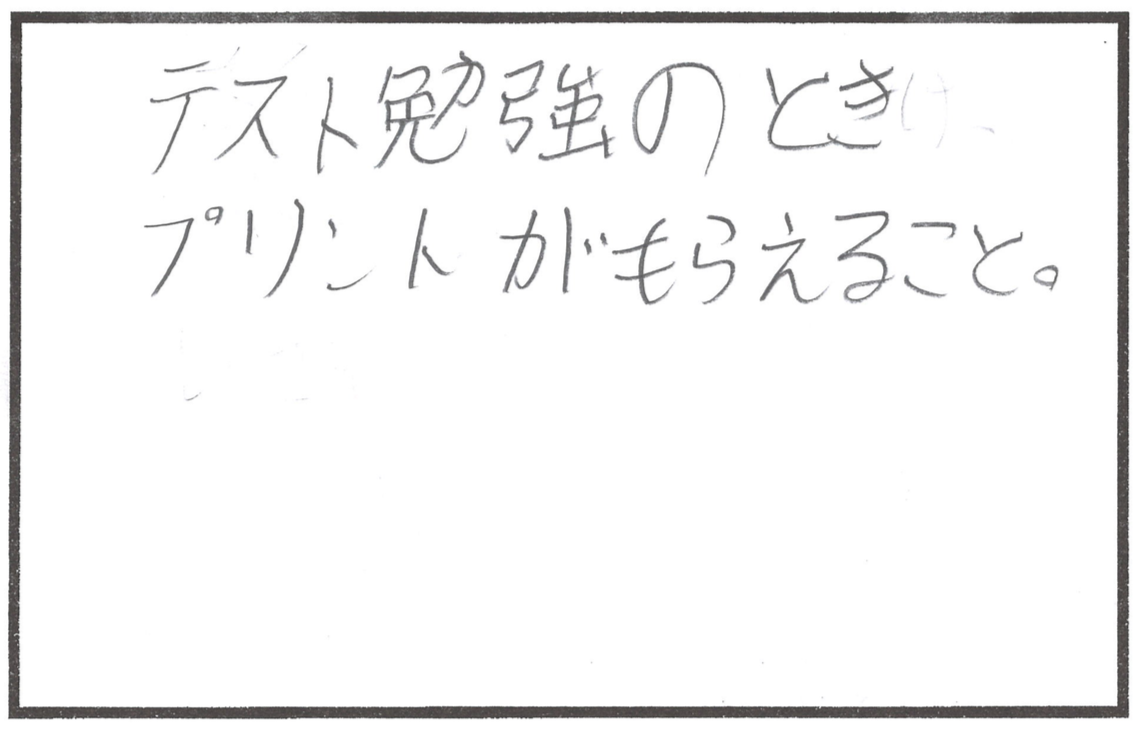 テスト勉強のとき
プリントがもらえること。